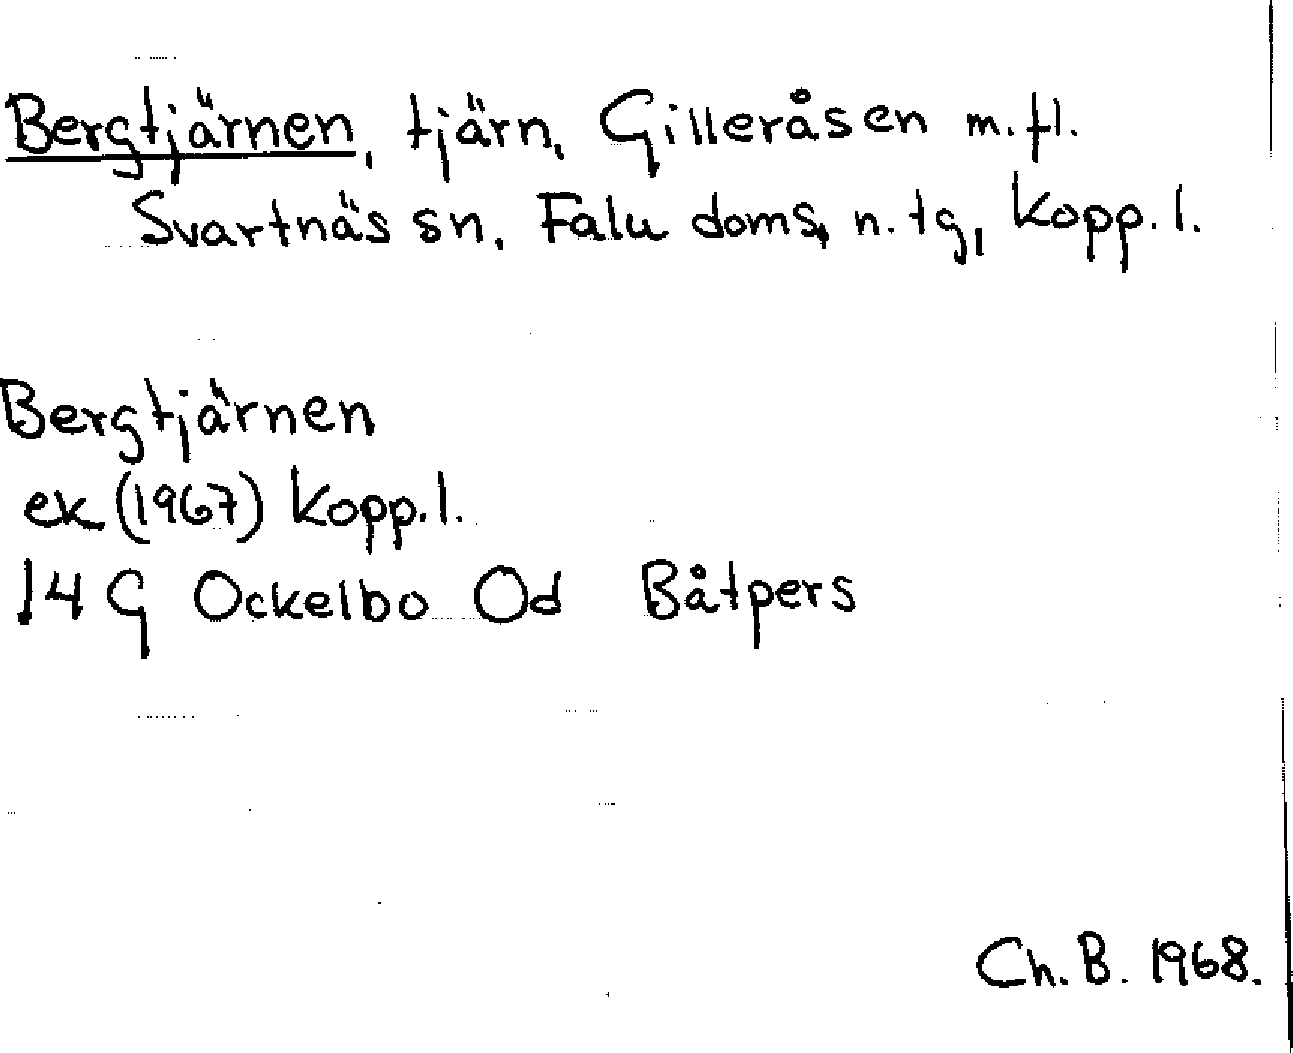 Bergtjärnen, tjärn, Gilleråsen m.fl.
Svartnäs sn, Falu doms, n. tg, Kopp. l.
Bergtjärnen
ek (1967) Kopp. l.
14 G Ockelbo Od Båtpers
Ch. B. 1968.